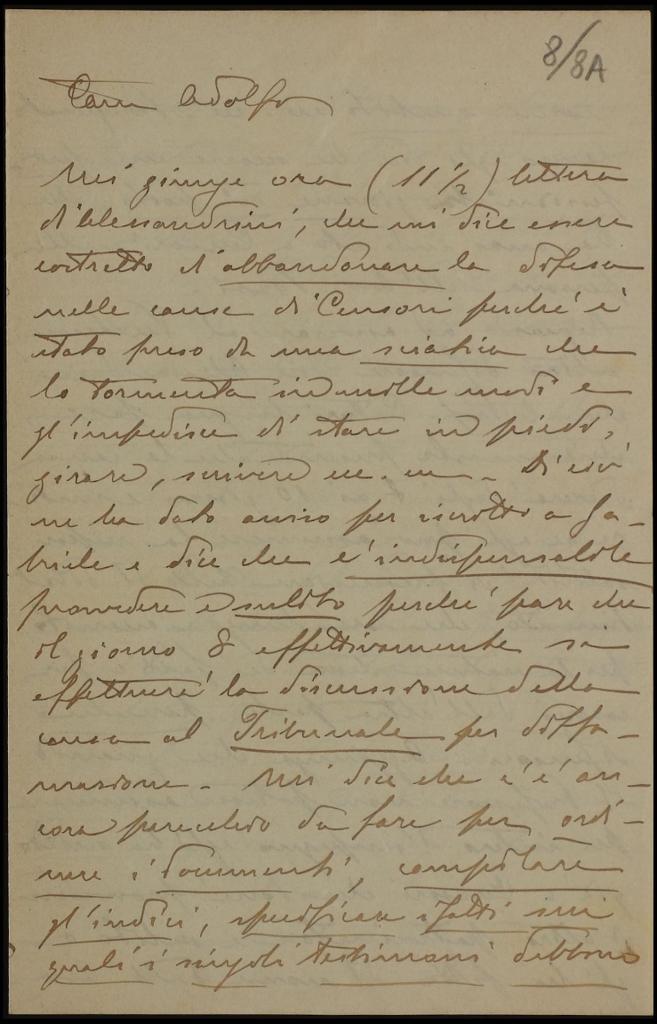 8/8A
Caro Adolfo
Mi giunge ora (11 1/2) lettera
d'Alessandrini, che mi dice essere
costretto d'abbandonare la difesa
nelle cause di Censori perché è
stato preso da una sciatica che
lo tormenta in mille modi e
gl'impedisce di stare in piedi,
girare, scrivere ec. ec. - Di ciò
ne ha dato avviso per iscritto a Ga-
briele e dice che è indispensabile
provvedere e subito perché pare che
il giorno 8 effettivamente si
effettuerà la discussione della
causa al Tribunale per diffa-
mazione - Mi dice che c'è an-
cora parecchio da fare per ordi-
nare i documenti, compilare
gl'indici, specificare i fatti sui
quali i singoli testimoni debbono